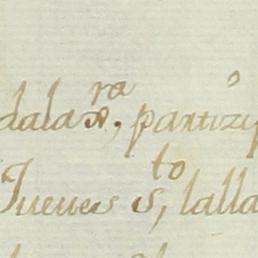 dalax^ra, partizip^o
Jueves S^to, lalla